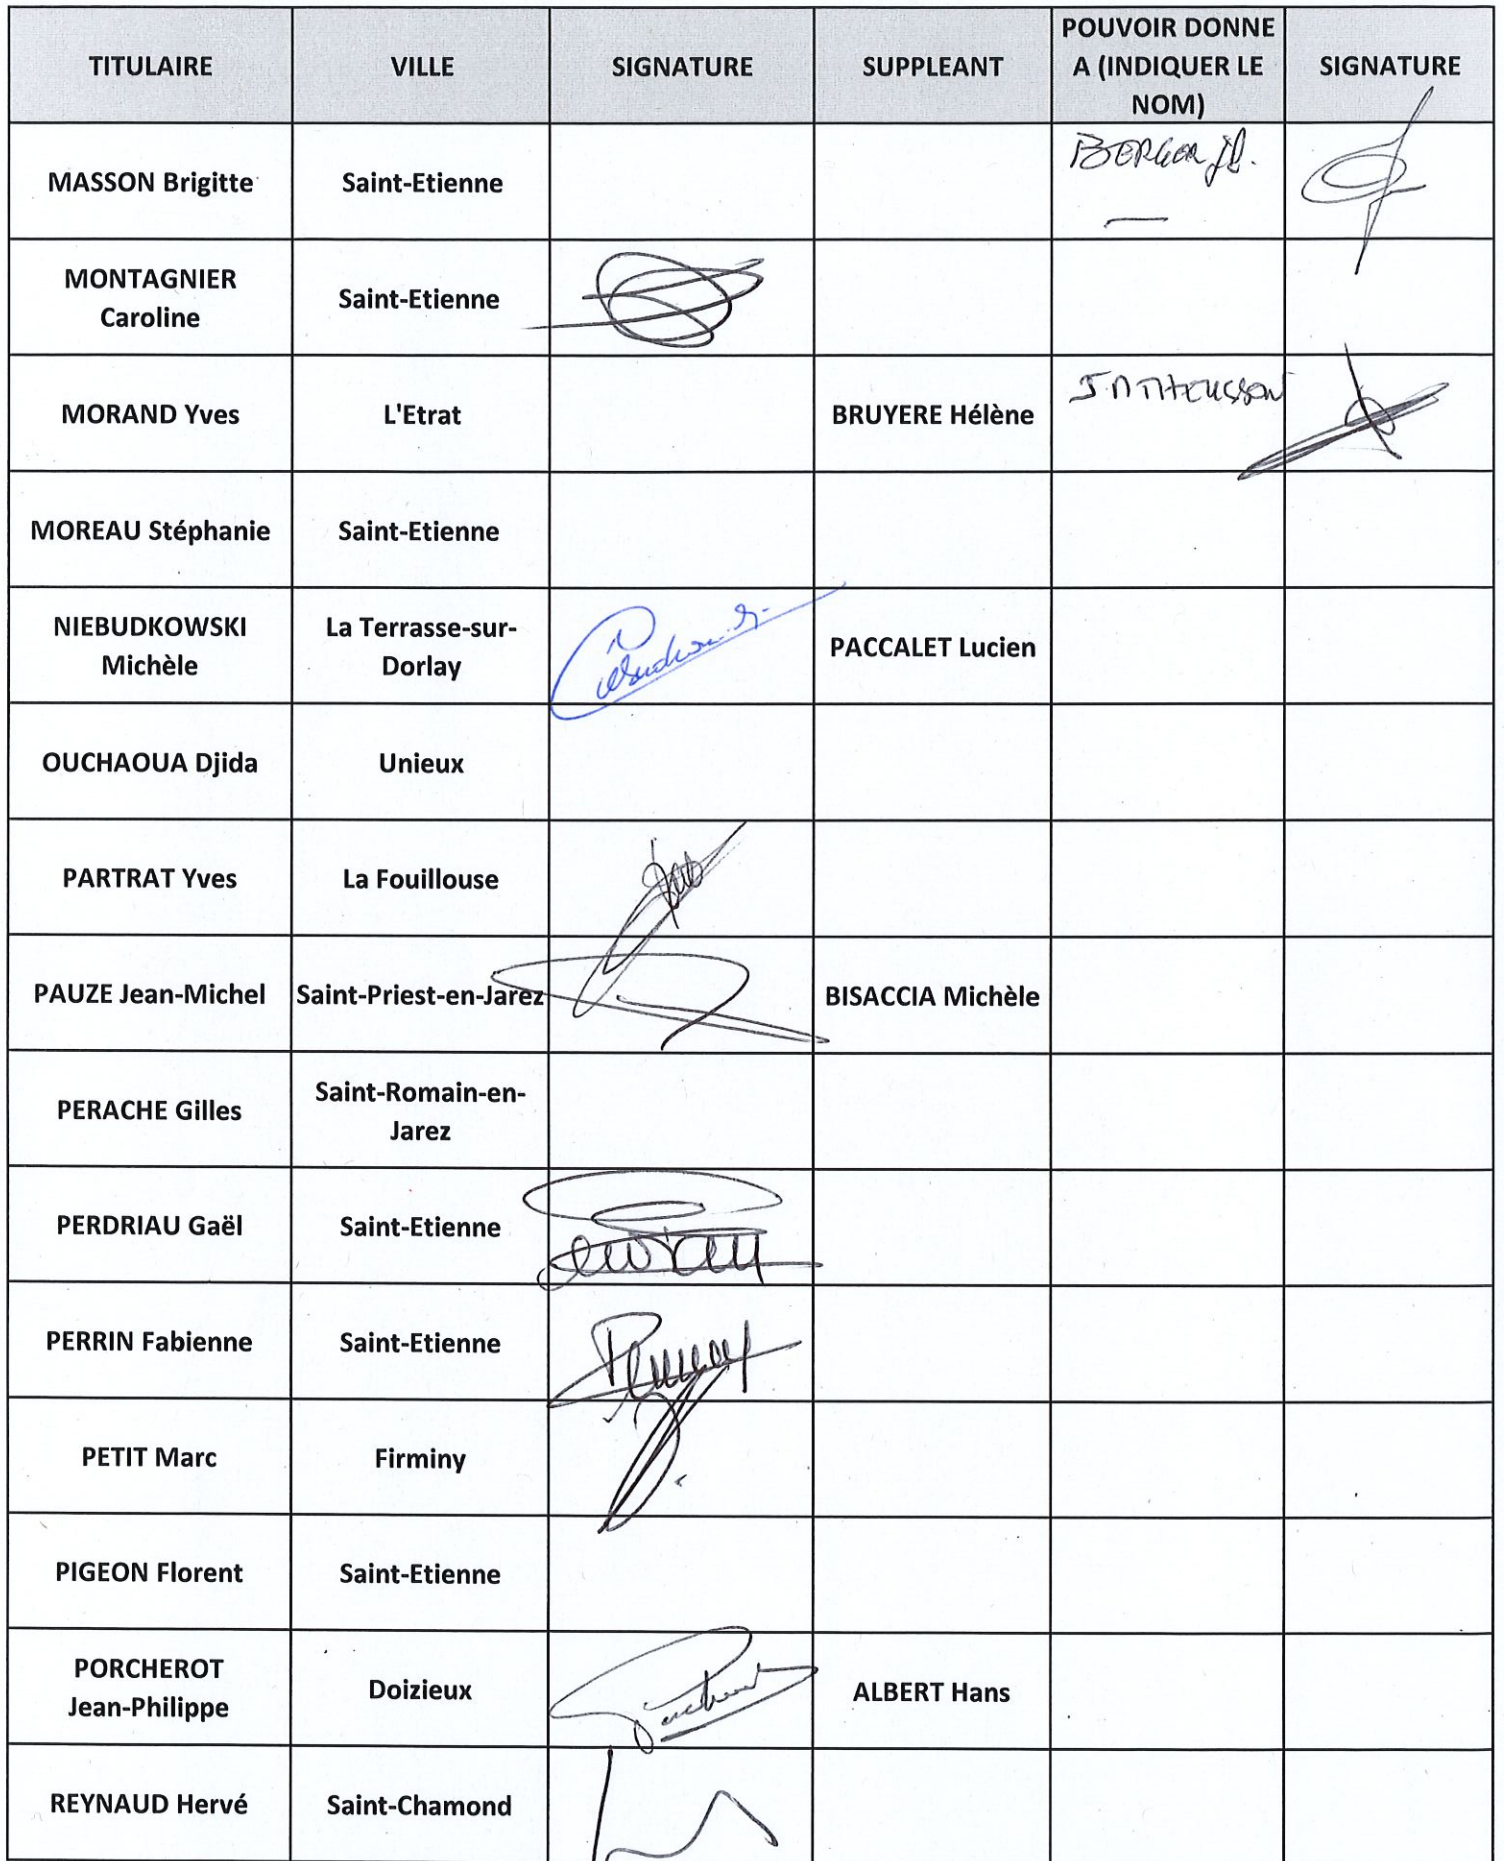 TITULAIRE VILLE SIGNATURE SUPPLEANT POUVOIR DONNE A (INDIQUER LE NOM) SIGNATURE
MASSON Brigitte Saint-Etienne BERGER JL.
MONTAGNIER Caroline Saint-Etienne
MORAND Yves L'Etrat BRUYERE Hélène
MOREAU Stéphanie Saint-Etienne
NIEBUDKOWSKI Michèle La Terrasse-sur-Dorlay PACCALET Lucien
OUCHAOUA Djida Unieux
PARTRAT Yves La Fouillouse
PAUZE Jean-Michel Saint-Priest-en-Jarez BISACCIA Michèle
PERACHE Gilles Saint-Romain-en-Jarez
PERDRIAU Gaël Saint-Etienne
PERRIN Fabienne Saint-Etienne
PETIT Marc Firminy
PIGEON Florent Saint-Etienne
PORCHEROT Jean-Philippe Doizieux ALBERT Hans
REYNAUD Hervé Saint-Chamond